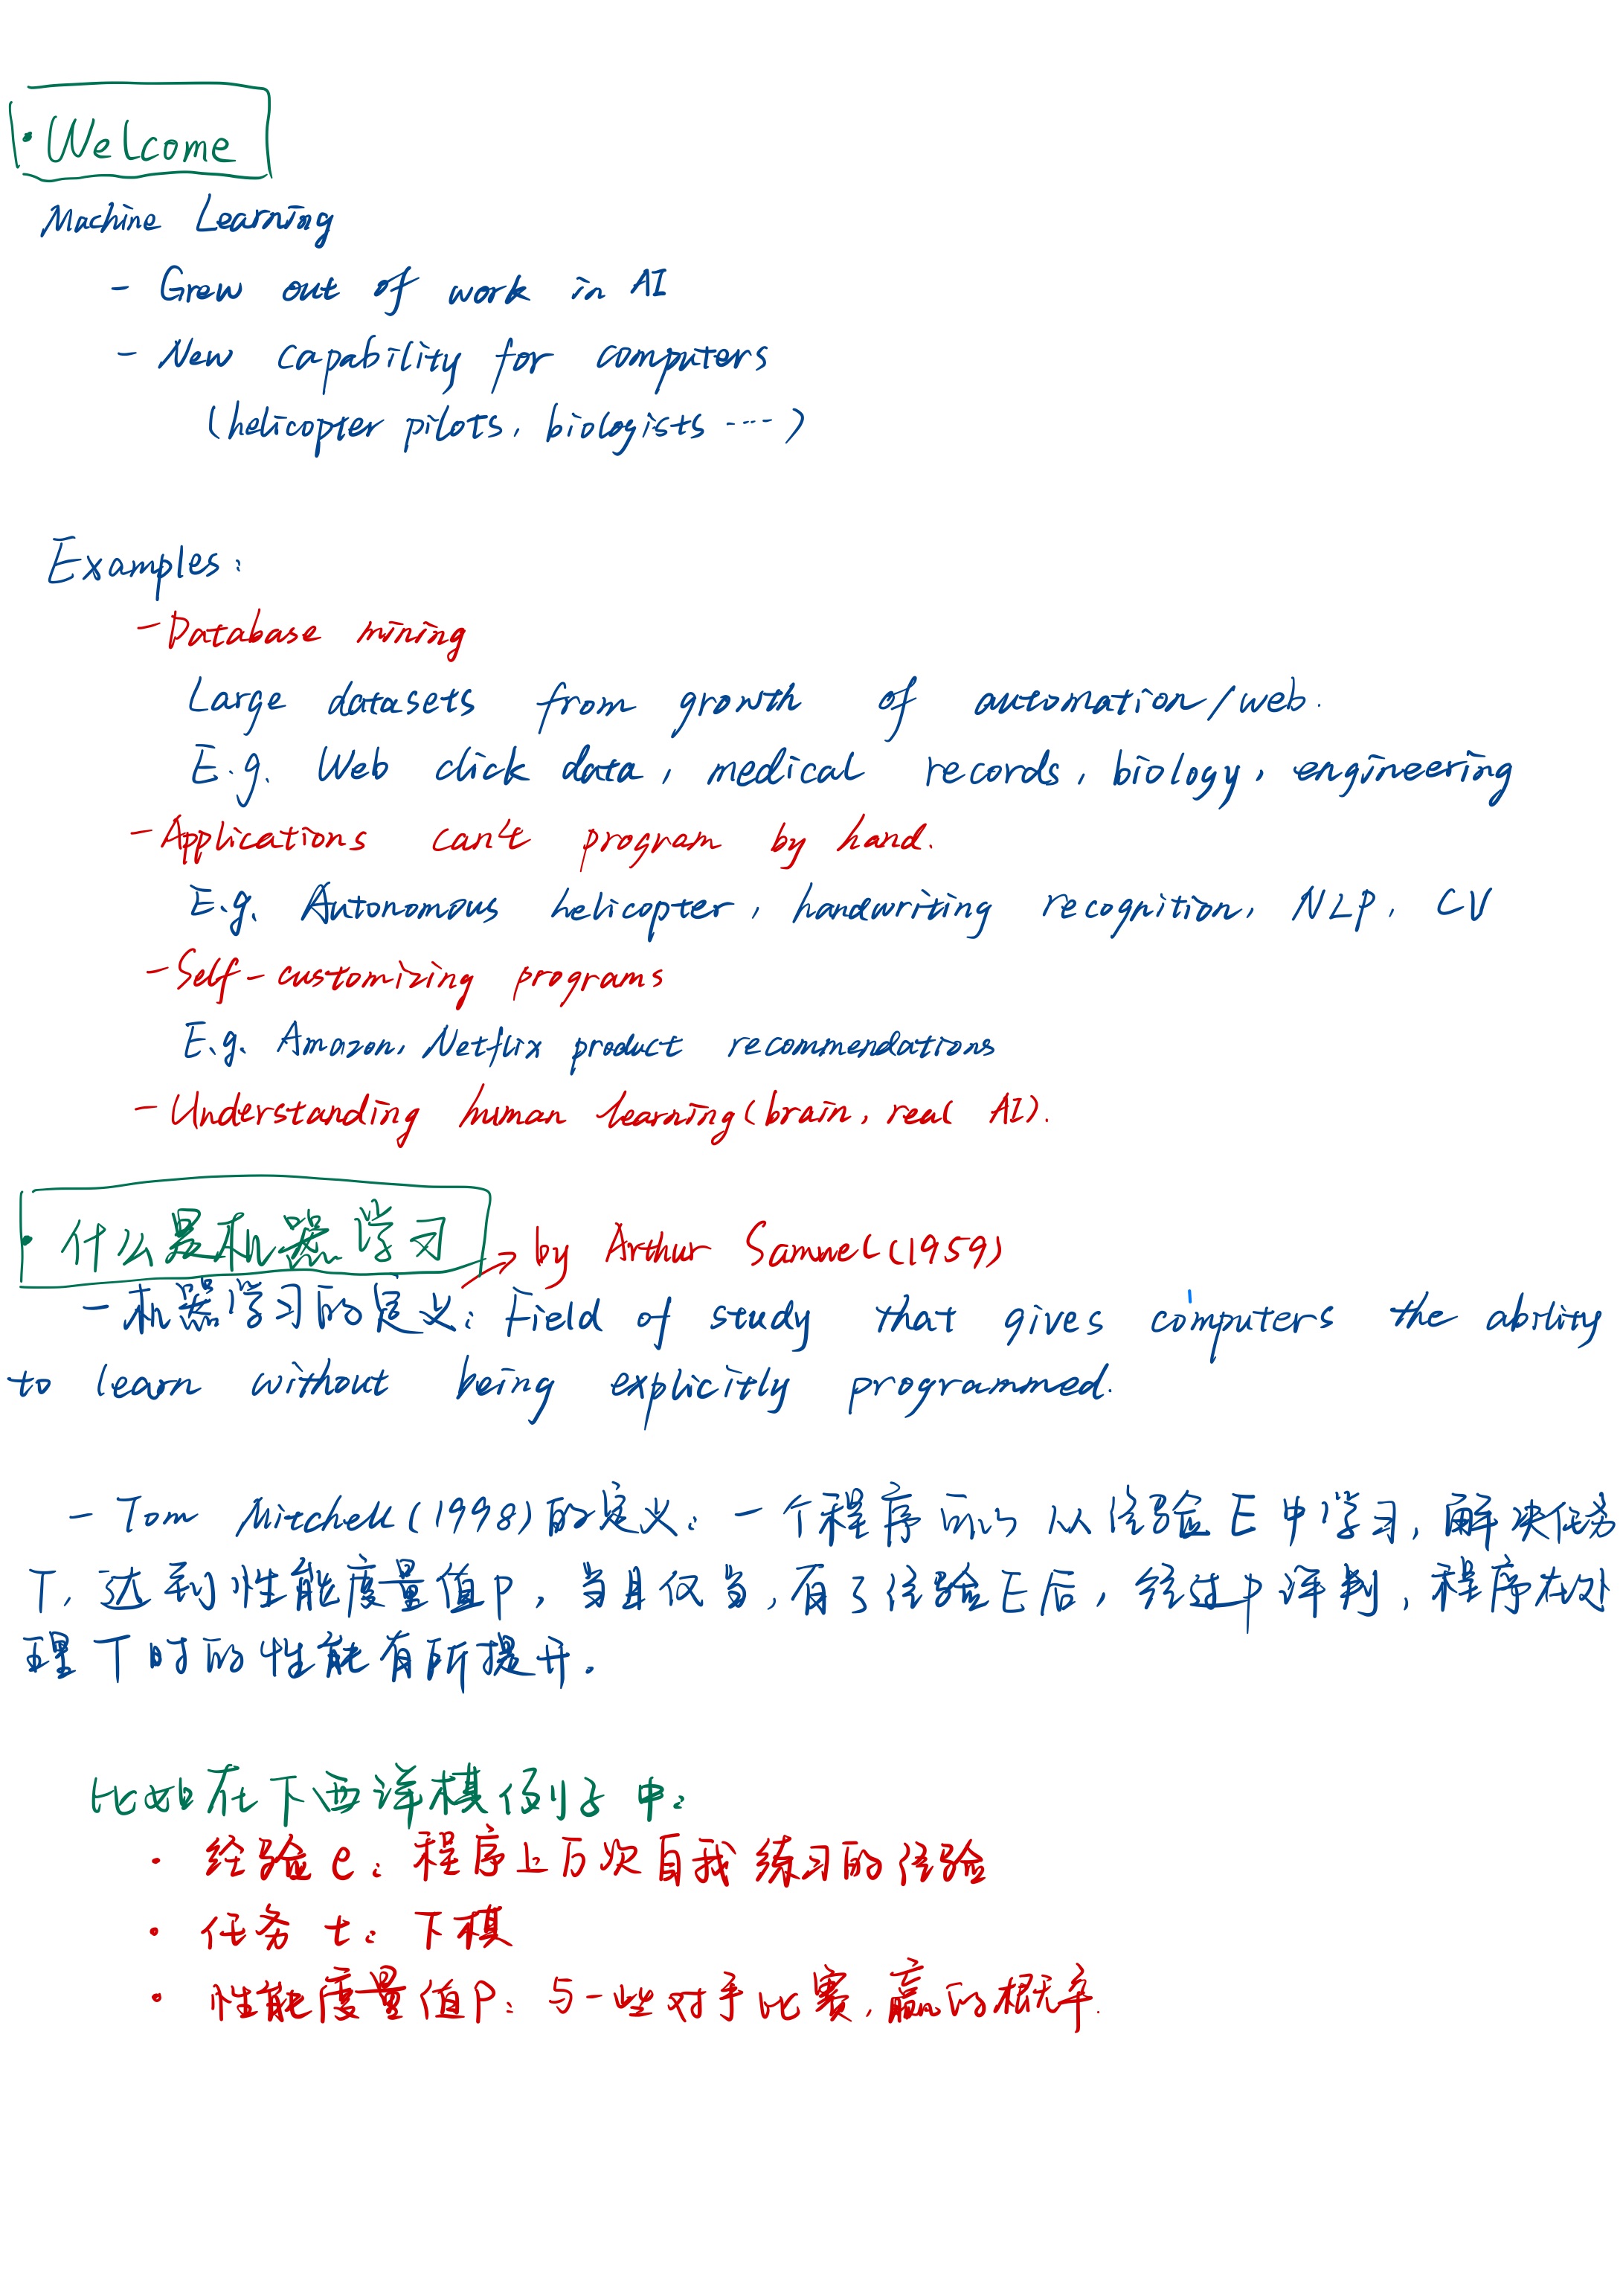 · Welcome
Machine Learning
- Grew out of work in AI
- New capability for computers
(helicopter pilots, biologists ····)
Examples:
- Database mining
Large datasets from growth of automation/web.
E.g. Web click data, medical records, biology, engineering
- Applications can't program by hand.
E.g. Autonomous helicopter, handwriting recognition, NLP, CV
- Self-customizing programs
E.g. Amazon, Netflix product recommendations
- Understanding human learning (brain, real AI).
· 什么是机器学习
by Arthur Samuel (1959)
- 机器学习的定义: Field of study that gives computers the ability
to learn without being explicitly programmed.
- Tom Mitchell (1998) 的定义: 一个程序可以从经验E中学习, 解决任务
T, 达到性能度量值P, 当且仅当, 有了经验E后, 经过P评判, 程序在处
理T时的性能有所提升.
比如在下西洋棋例子中:
· 经验e: 程序上万次自我练习的经验
· 任务t: 下棋
· 性能度量值P: 与一些对手比赛, 赢的概率.